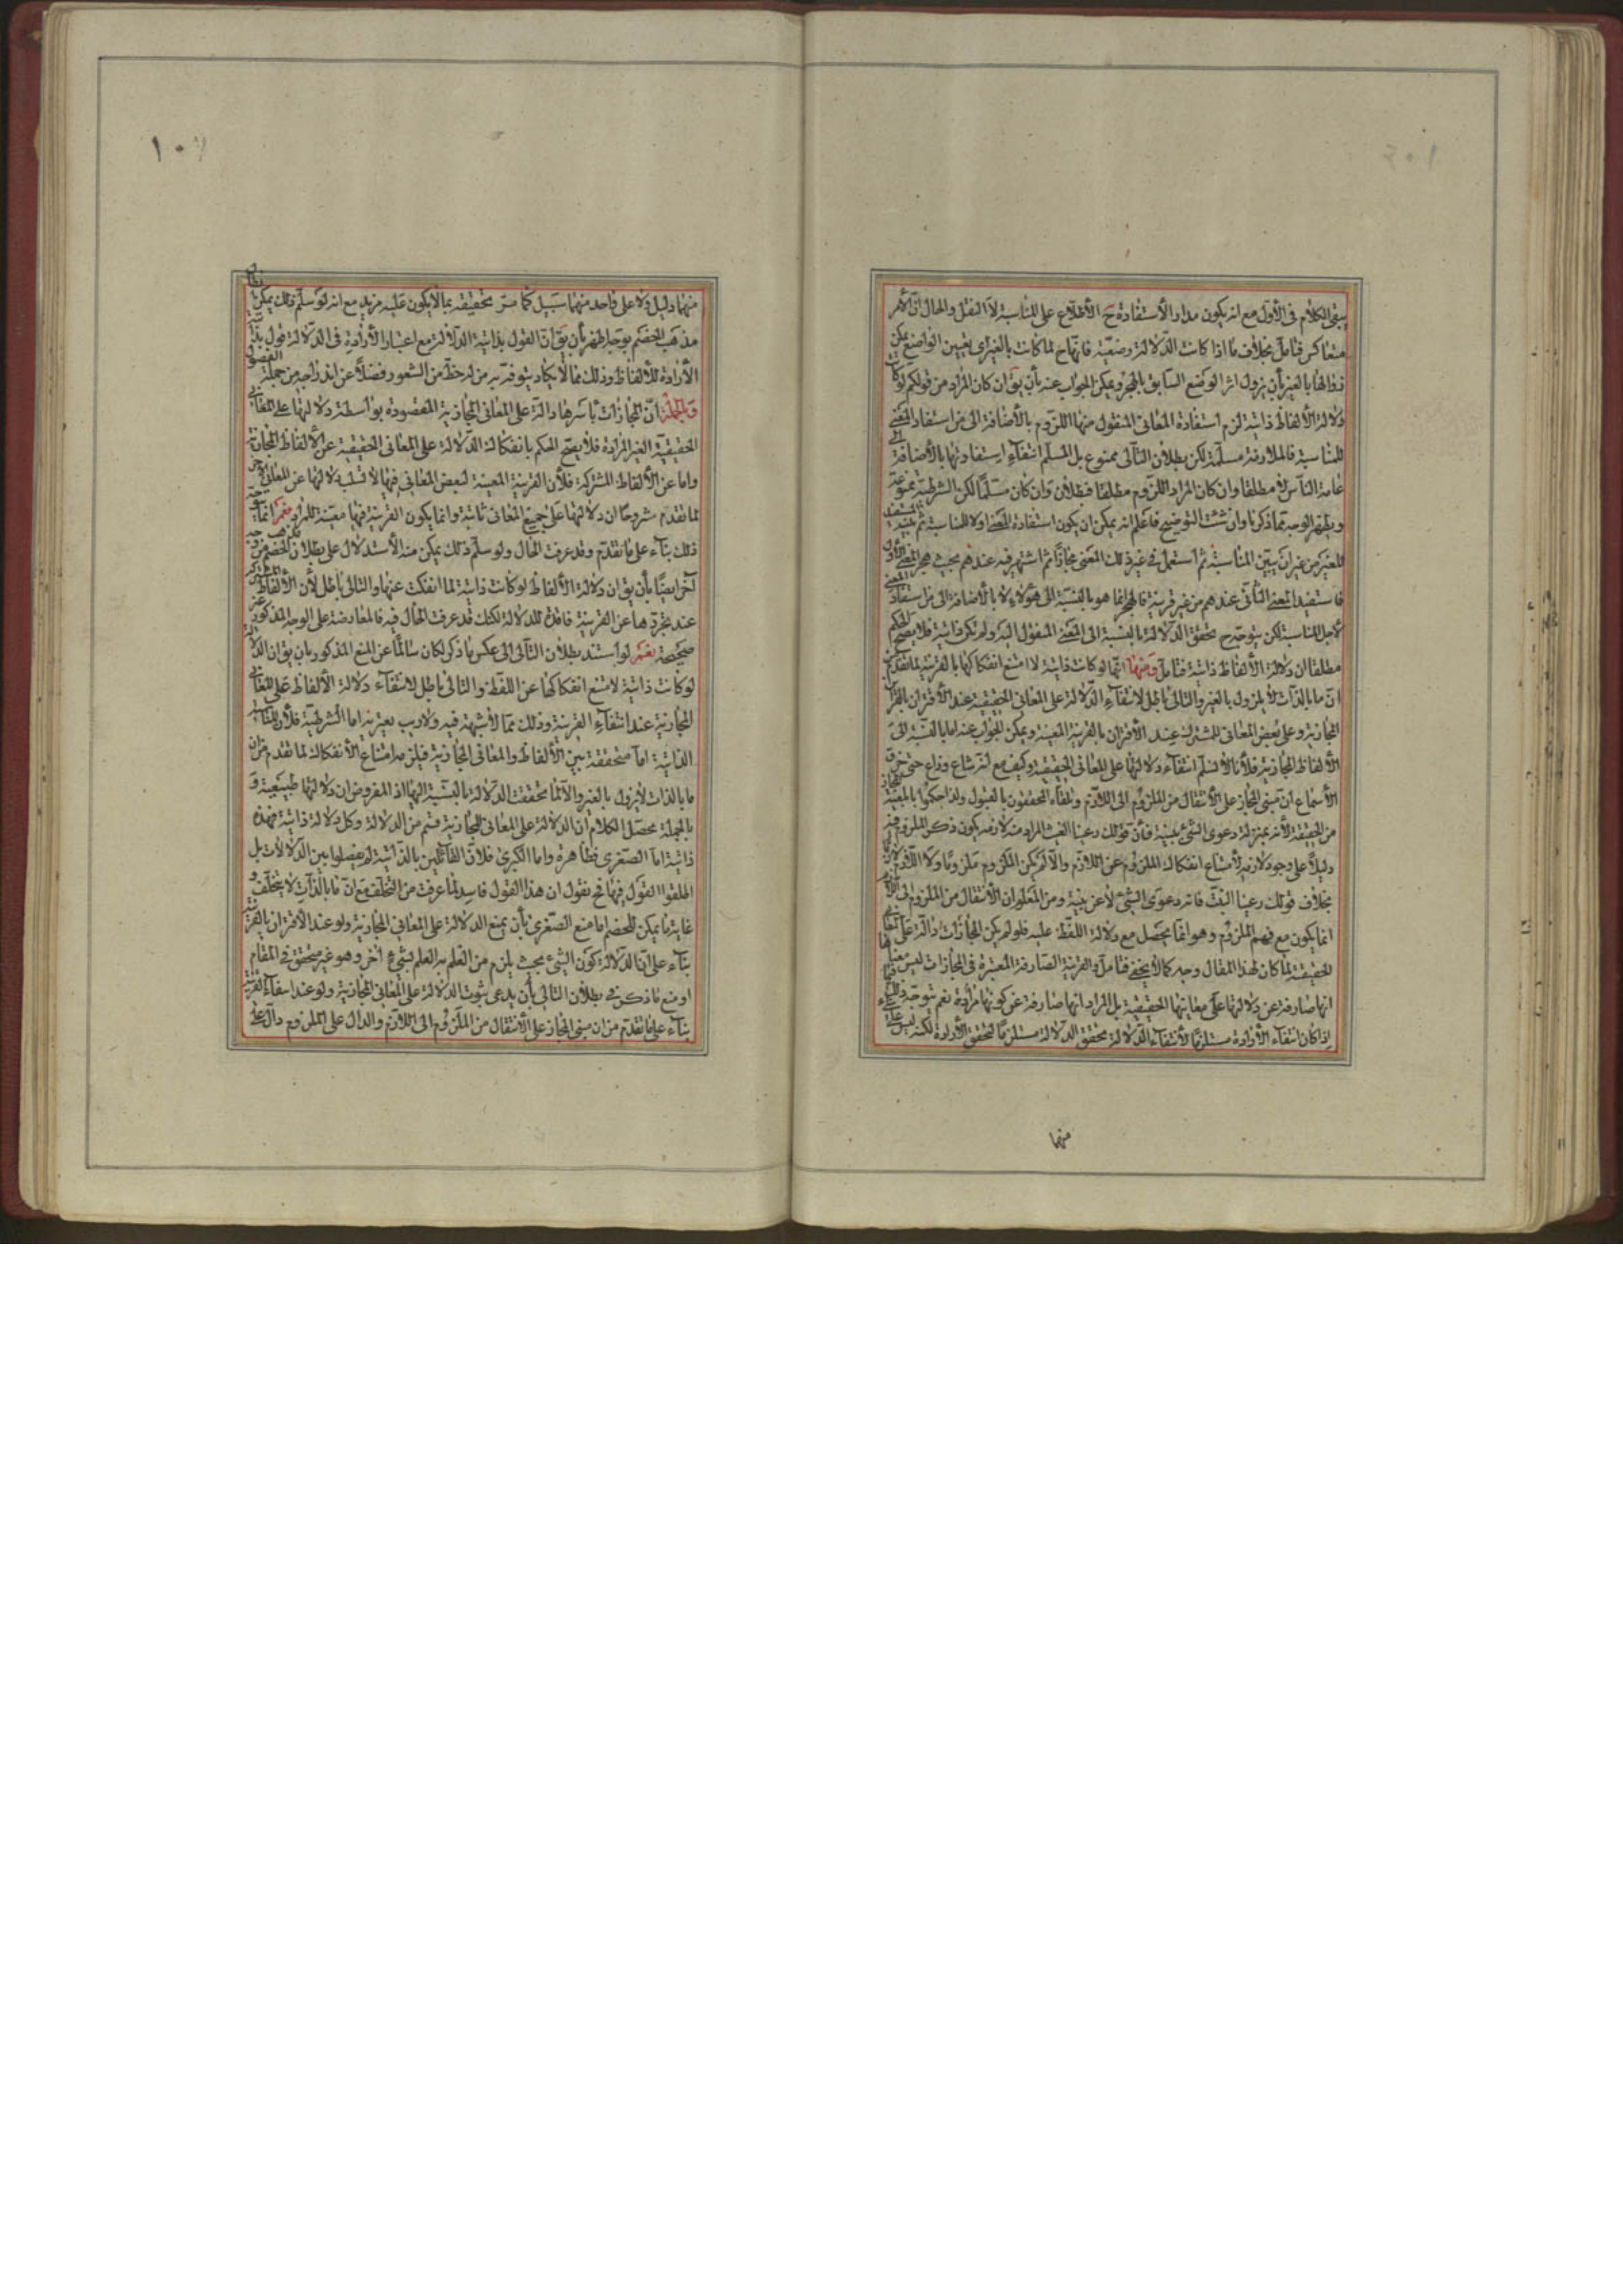 يبقى الكلام في الأول مع انه يكون مدار الأستفادة ح الأطلاع على المناسبة لا النقل والحال ان الأمر
متعاكس فتأمل بخلاف ما اذا كانت الدلالة وضعية فانها ح لما كانت بالغير اى بتعيين الواضع يمكن
زوالها بالغير بأن يزول اثر الوضع السابق بالهجر ويمكن الجواب عنه بأن يق ان كان المراد من قولكم لو كانت
دلالة الألفاظ ذاتية لزم استفادة المعانى المنقول منها اللزوم بالأضافة الى من استفاد المعنى
للمناسبة فالملازمة مسلمة لكن بطلان التالى ممنوع بل المسلم انتفاء استفادتها بالأضافة الى
عامة الناس لا مطلقا وان كان المراد اللزوم مطلقا فبطلان وان كان مسلما لكن الشرطية ممنوعة
ويظهر الوجه مما ذكرنا وان شئت التوضيح فاعلم انه يمكن ان يكون استفادة المعنى اولا للمناسبة ثم
للغير من غير ان يبين المناسبة ثم استعمل في غير ذلك المعنى مجازا ثم اشتهر فيه عندهم بحيث هجر المعنى الأول
فاستفيد المعنى الثانى عندهم من غير قرينة فالهجر انما هو بالنسبة الى هؤلاء لا بالأضافة الى من استفاد المعنى
لأجل المناسبة لكن يتوجه ح تحقق الدلالة بالنسبة الى المعنى المنقول اليه ولم تكن ذاتية فلا يصح الحكم
مطلقا ان دلالة الألفاظ ذاتية فتأمل ومنها انها لو كانت ذاتية لامتنع انفكاكها بالقرينة لما تقدم من
ان ما بالذات لا يزول بالغير والتالى باطل لانتفاء الدلالة على المعانى الحقيقية عند الأقتران بالقرائن
المجازية وعلى بعض المعانى للمشترك عند الأقتران بالقرينة المعينة ويمكن الجواب عنه اما بالنسبة الى
الألفاظ المجازية فلأنا لا نسلم انتفاء دلالتها على المعانى الحقيقية وكيف مع انه شاع وذاع حتى خرق
الأسماع ان مبنى المجاز على الأنتقال من الملزوم الى اللازم وتلقاه المحققون بالقبول ولذا حكموا بابلغية المجاز
من الحقيقة لأنه بمنزلة دعوى الشيئ ببينة فأن قولك رعينا الغيث المراد منه لازمه يكون ذكر الملزوم فيه
دليلا على وجود لازمه لأمتناع انفكاك الملزوم عن اللازم والا لم يكن الملزوم ملزوما ولا اللازم لازما
بخلاف قولك رعينا النبت فانه دعوى الشيئ لا عن بينة ومن المعلوم ان الأنتقال من الملزوم الى اللازم
انما يكون مع فهم الملزوم وهو انما يحصل مع دلالة اللفظ عليه فلو لم يكن المجازات دالة على المعانى
الحقيقية لما كان لهذا المقال وجه كما لا يخفى فتأمل والقرينة الصارفة المعتبرة في المجازات ليس معناها
انها صارفة عن دلالتها على معانيها الحقيقية بل المراد انها صارفة عن كونها مرادة نعم يتوجه ذلك
اذا كان انتفاء الأرادة مستلزما لأنتفاء الدلالة تحقق الدلالة مستلزما لتحقق الأرادة لكنه ليس على
منها
١٠٦
منها دليل ولا على واحد منهما سبيل كما مر تحقيقه بما لا يكون عليه مزيد مع انه لو سلم ذلك يمكن
مذهب الخصم بوجه اظهر بأن يق ان القول بذاتية الدلالة مع اعتبار الأرادة في الدلالة قول بذاتية
الأرادة للألفاظ وذلك مما لا يكاد يتوفر به من له حظ من الشعور فضلا عن اندراجه من جملة
وبالجملة ان المجازات بأسرها دالة على المعانى المجازية المقصودة بواسطة دلالتها على المعانى
الحقيقية الغير المرادة فلا يصح الحكم بانفكاك الدلالة على المعانى الحقيقية عن الألفاظ المجازية
واما عن الألفاظ المشتركة فلأن القرينة المعينة لبعض المعانى فيها لا تسلب دلالتها عن المعانى
لما تقدم مشروحا ان دلالتها على جميع المعانى ثابتة وانما يكون القرينة فيها معينة للمراد نعم انما
ذلك بناء على ما تقدم وقد عرفت الحال ولو سلم ذلك يمكن منه الأستدلال على بطلان الخصم من وجه
آخر ايضا بأن يق ان دلالة الألفاظ لو كانت ذاتية لما انفكت عنها والتالى باطل لأن الألفاظ المشتركة
عند تجردها عن القرينة فاقدة لتلك الدلالة لكنك قد عرفت الحال فيه فالمعارضة على الوجه المذكور غير
صحيحة نعم لو استند بطلان التالى الى عكس ما ذكر لكان سالما عن المنع المذكور بان يق ان الدلالة
لو كانت ذاتية لامتنع انفكاكها عن اللفظ والتالى باطل لانتفاء دلالة الألفاظ على المعانى
المجازية عند انتفاء القرينة وذلك مما لا شبهة فيه ولا ريب يعتريه اما الشرطية فلأن المناسبة
الذاتية اما متحققة بين الألفاظ والمعانى المجازية فيلزمه امتناع الأنفكاك لما تقدم من ان
ما بالذات لا يزول بالغير والا لما تحققت الدلالة بالنسبة اليها اذ المفروض ان دلالتها طبيعية و
بالجملة محصل الكلام ان الدلالة على المعانى المجازية قسم من الدلالة وكل دلالة ذاتية فهذه
ذاتية اما الصغرى فظاهرة واما الكبرى فلان القائلين بالذاتية لم يفصلوا بين الدلالات بل
اطلقوا القول فيها فح نقول ان هذا القول فاسد لما عرفت من التخلف مع ان ما بالذات لا يتخلف و
غاية ما يمكن للخصم اما منع الصغرى بأن يمنع الدلالة على المعانى المجازية ولو عند الأقتران بالقرينة
بناء على ان الدلالة كون الشيئ بحيث يلزم من العلم به العلم بشيئ آخر وهو غير متحقق في المقام
او منع ما ذكر في بطلان التالى بأن يدعى ثبوت الدلالة على المعانى المجازية ولو عند انتفاء القرينة
بناء على ما تقدم من ان مبنى المجاز على الأنتقال من الملزوم الى اللازم والدال على الملزوم دال على